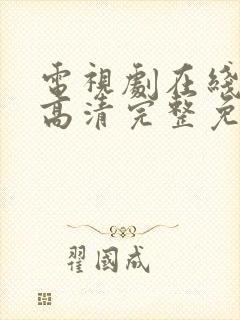 電視劇在綫
高清完整免
翟國成